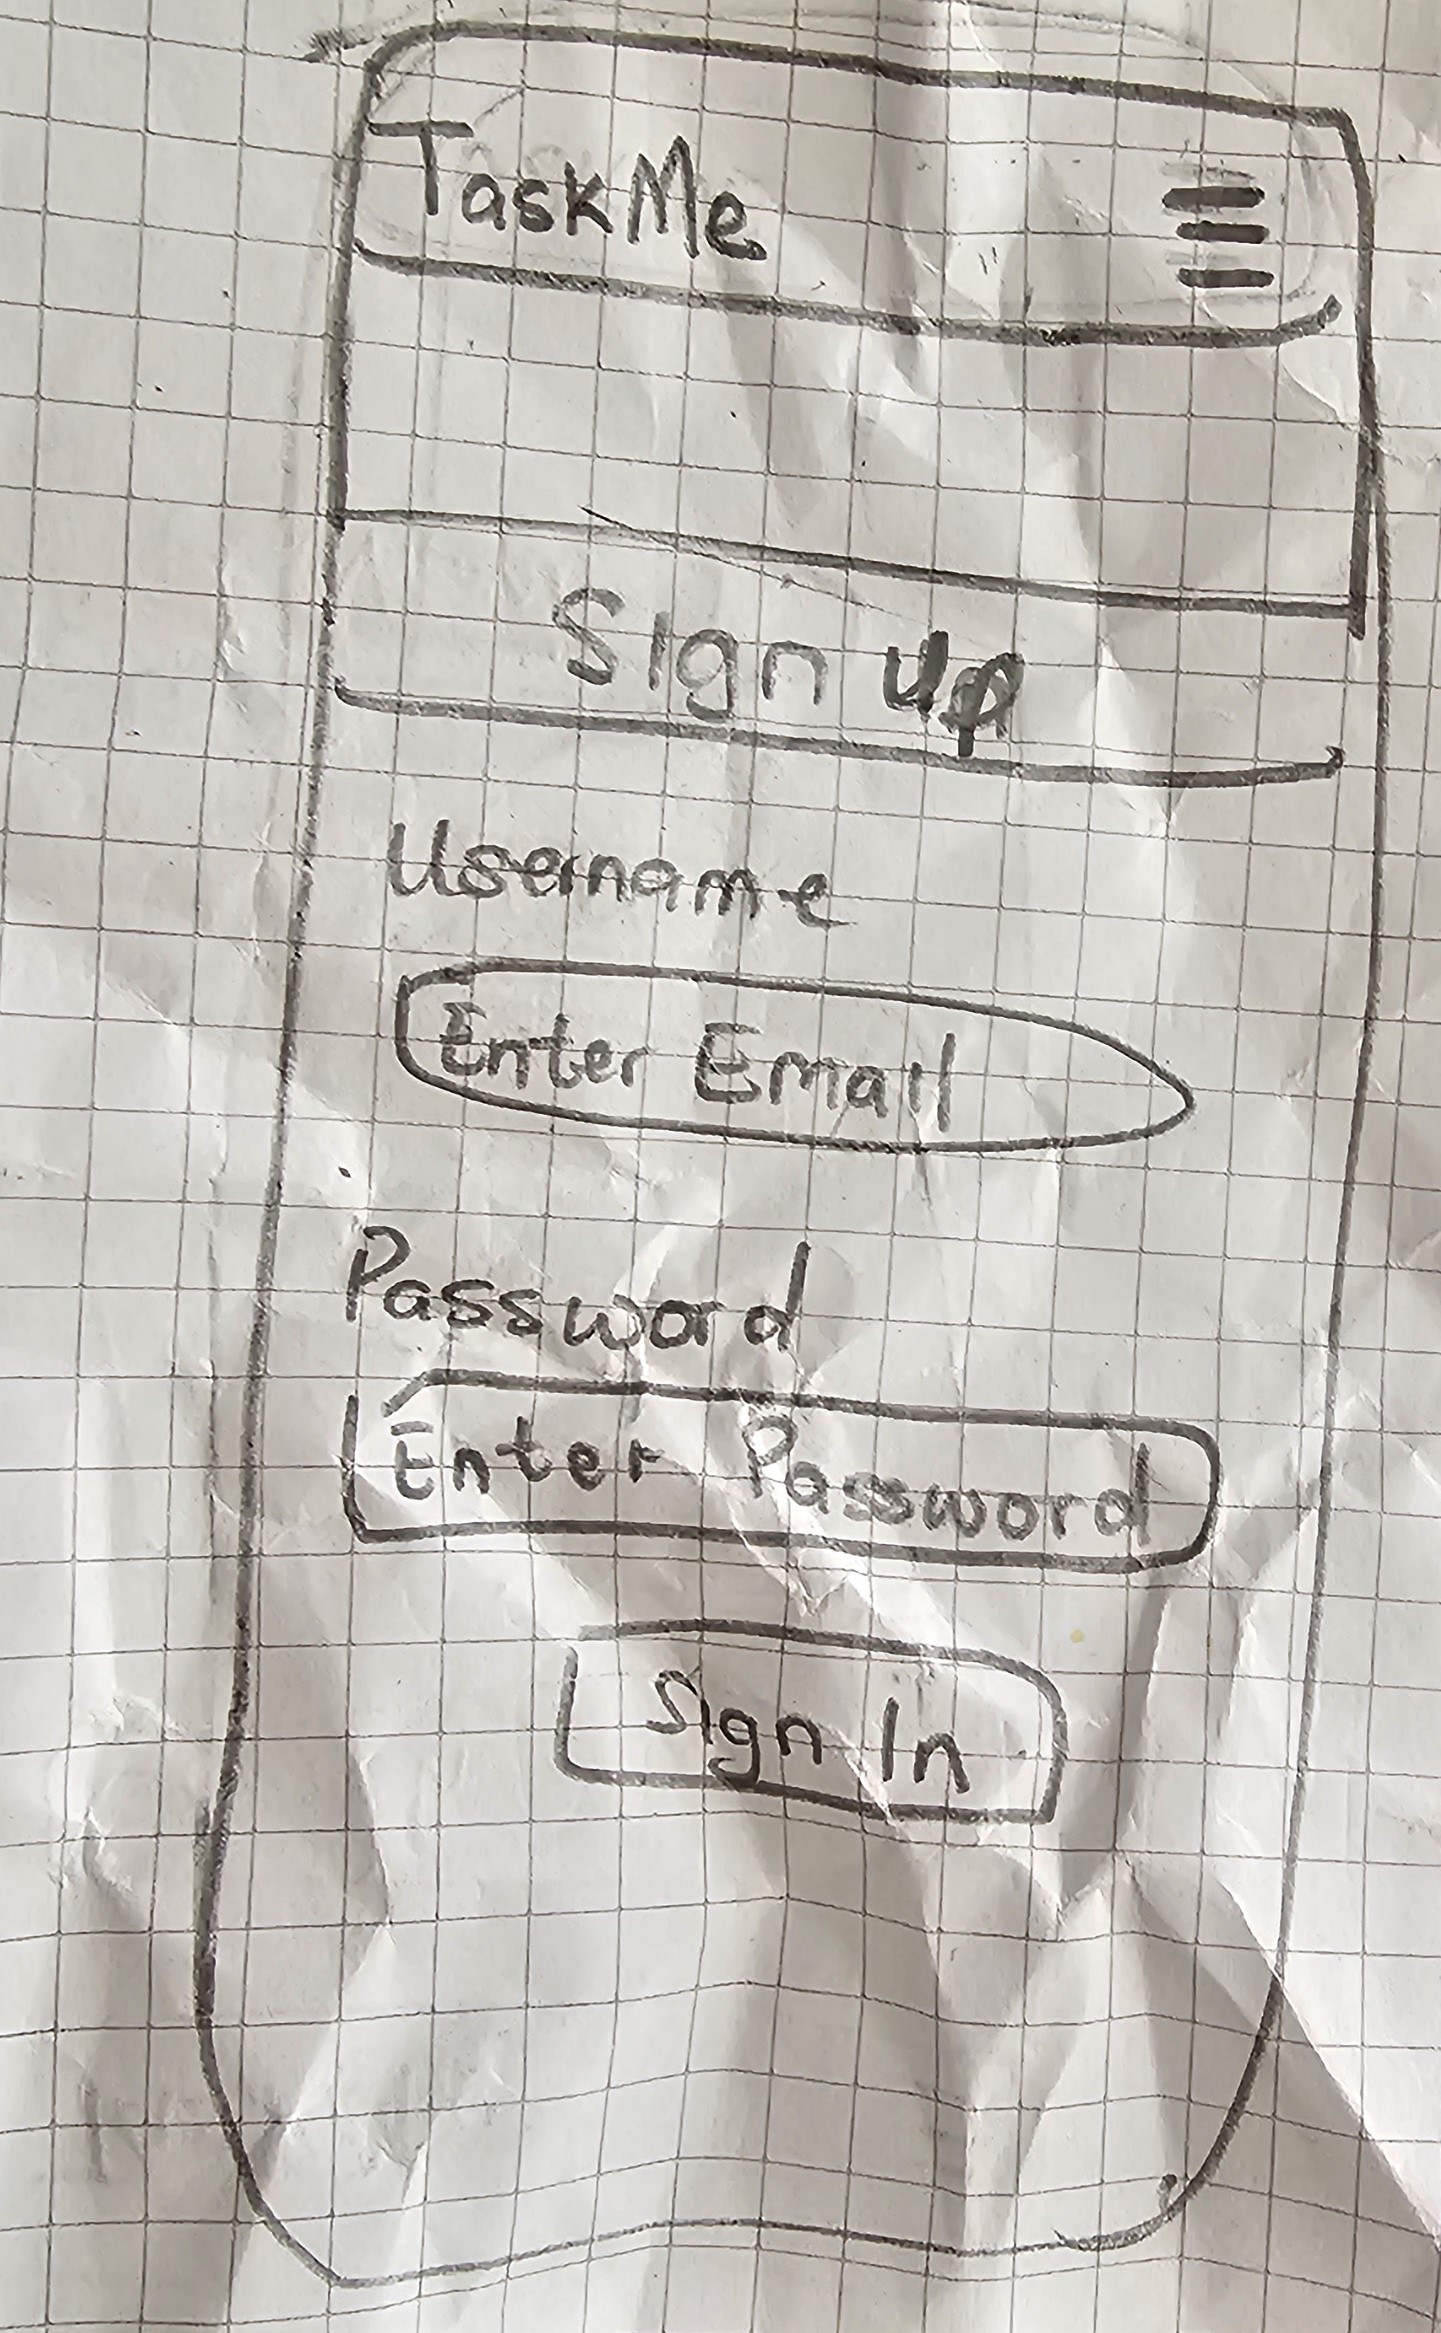 TaskMe
Sign up
Username
Enter Email
Password
Enter Password
Sign In